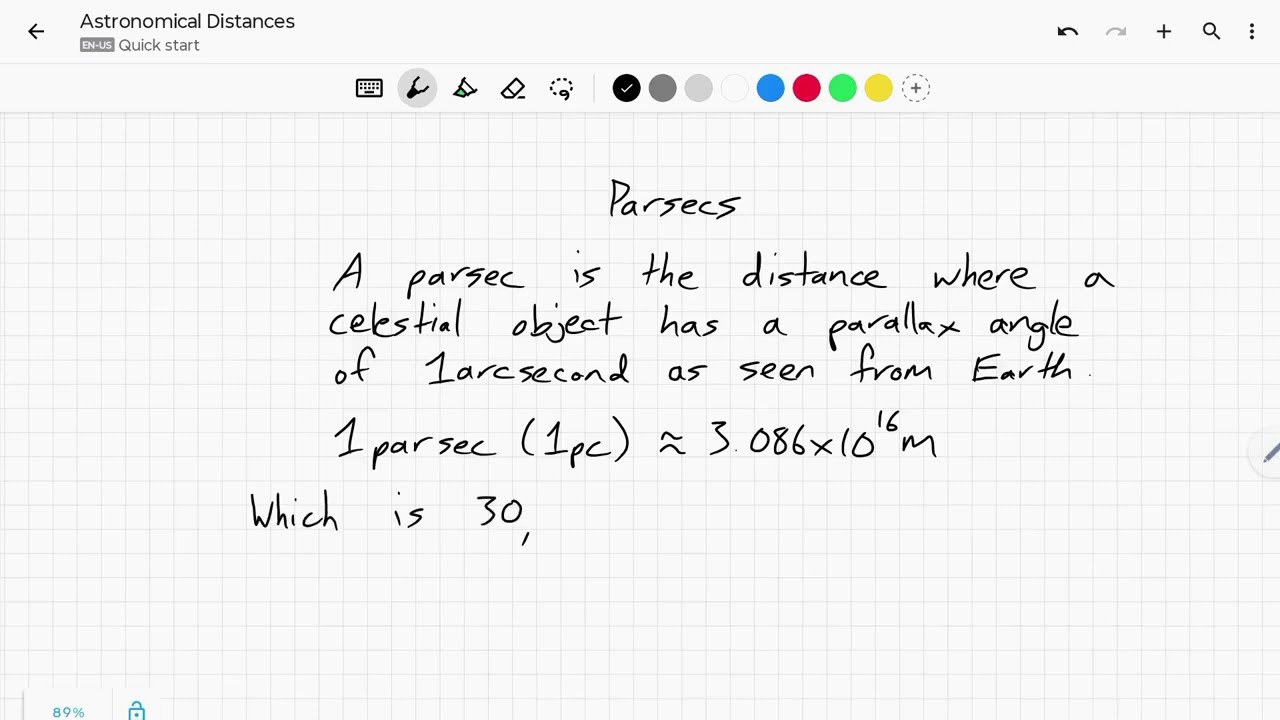 Astronomical Distances
EN-US Quick start
Parsecs
A parsec is the distance where a
celestial object has a parallax angle
of 1arcsecond as seen from Earth.
1parsec (1pc) ≈ 3.086x10¹⁶m
Which is 30,
89%